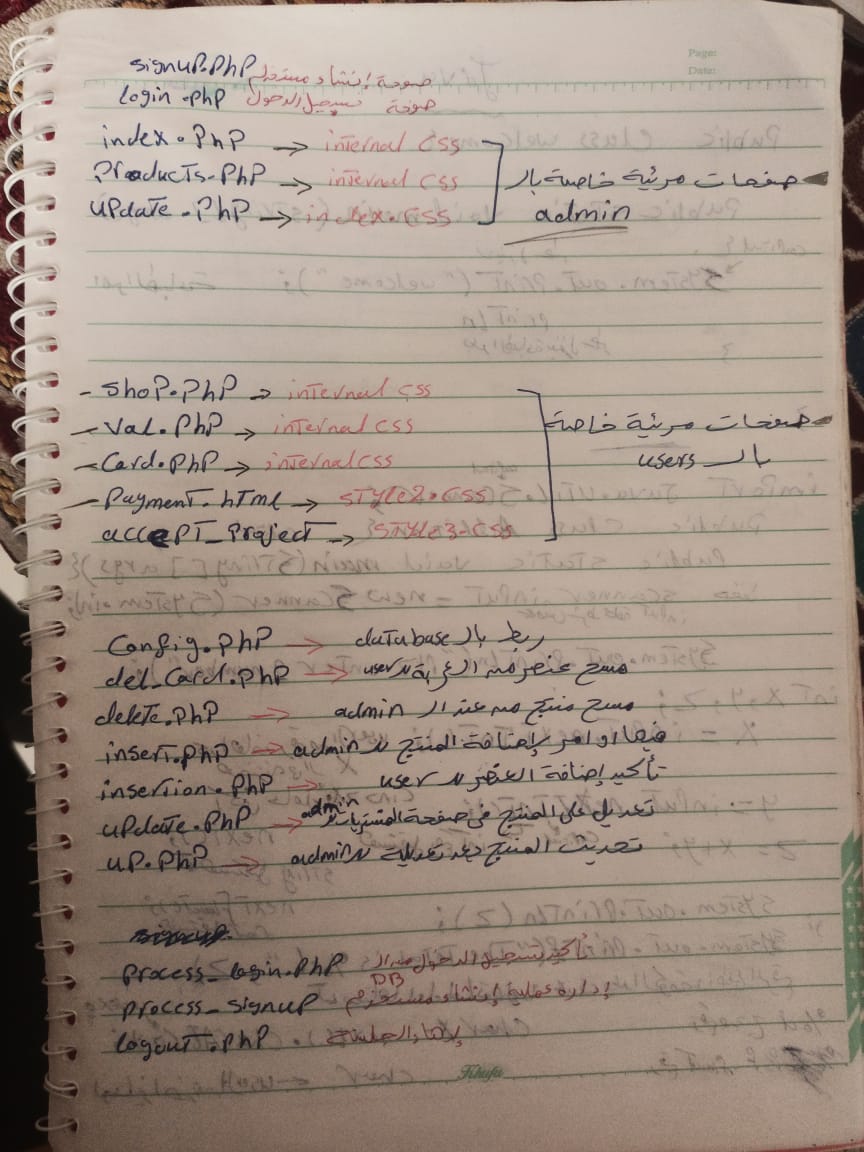 Page:
Date:
signup.php صفحة إنشاء مستخدم
login.php صفحة تسجيل الدخول
index.php → internal css
products.php → internal css
update.php → index.css
صفحات مرئية خاصة بال
admin
- shop.php → internal css
- val.php → internal css
- card.php → internal css
- payment.html → style2.css
accept_project → style3.css
صفحات مرئية خاصة
بال users
config.php → ربط بال database
del_card.php → مسح عنصر من العربة لل user
delete.php → مسح منتج من عند ال admin
insert.php → فيها اوامر لإضافة المنتج لل admin
insertion.php → تأكيد إضافة العنصر لل user
update.php → تعديل على المنتج في صفحة المشتريات لل admin
up.php → تحديث المنتج بعد تعديلة لل admin
process_login.php تأكيد تسجيل الدخول من ال DB
process_signup إدارة عملية إنشاء مستخدم
logout.php إنهاء الجلسة
Khufu